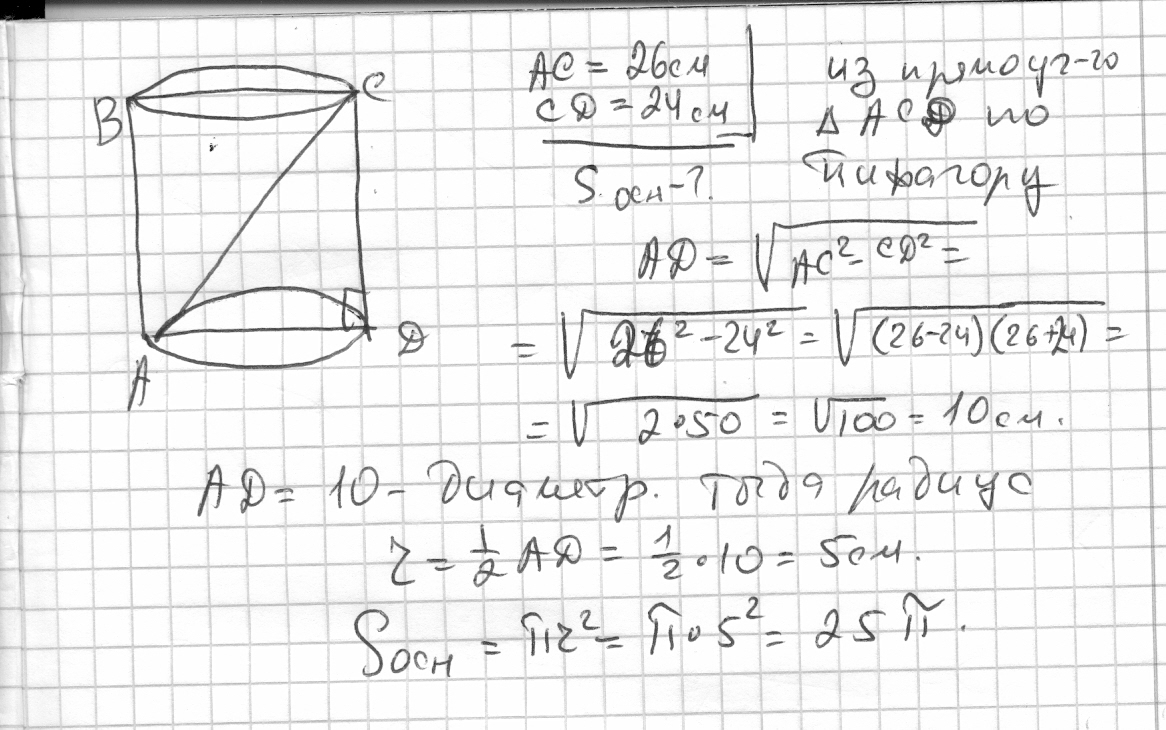 B
C
A
D
AC = 26см
CD = 24см
S осн - ?
из прямоуг-го
Δ ACD по
Пифагору
AD = √(AC² - CD²) =
= √(26² - 24²) = √((26-24)(26+24)) =
= √(2·50) = √100 = 10см.
AD = 10 - диаметр. Тогда радиус
r = 1/2 AD = 1/2 · 10 = 5см.
Sосн = πr² = π·5² = 25π.